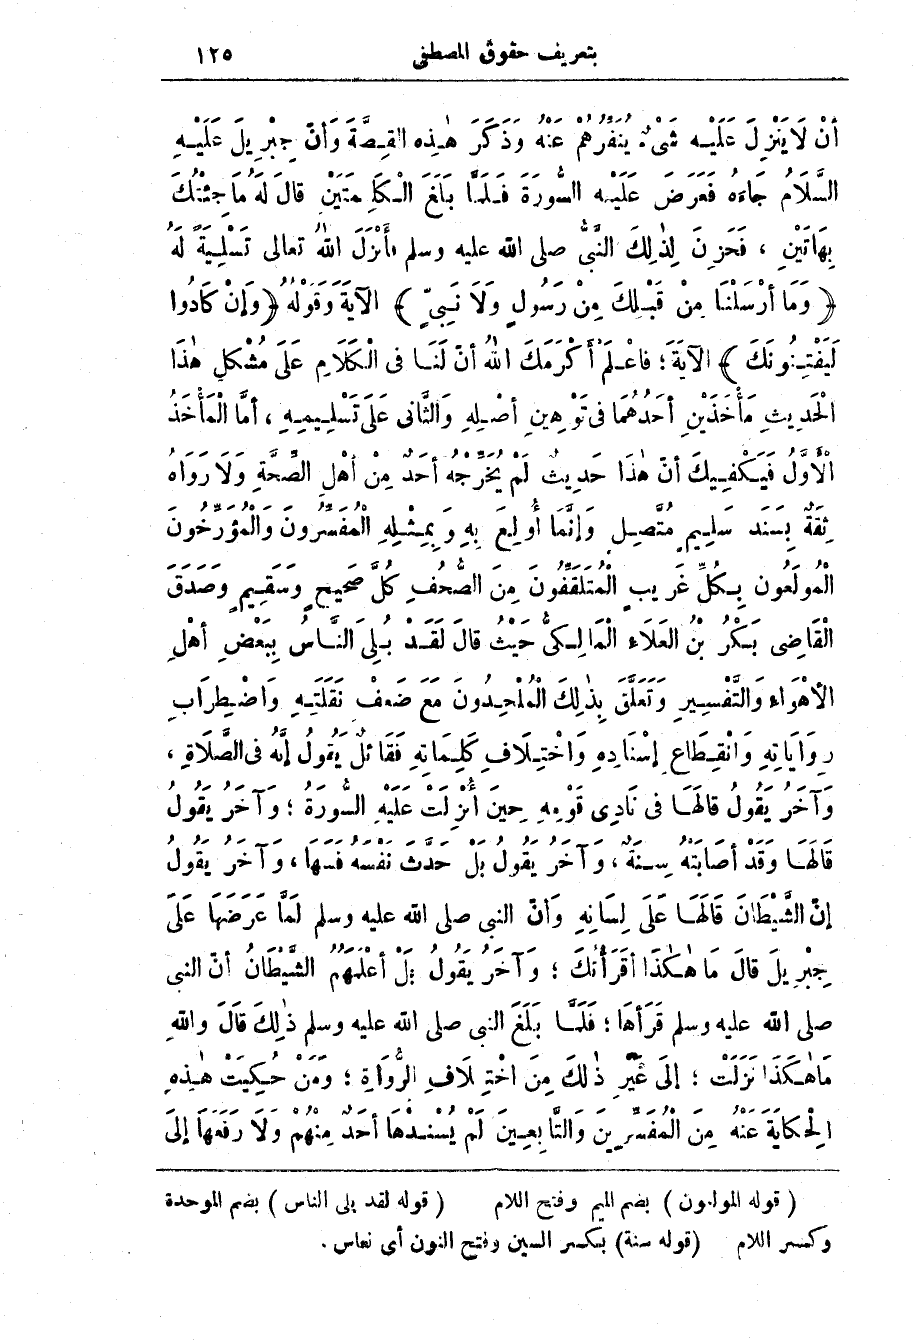 بتعريف حقوق المصطفى ١٢٥
أنْ لَا يَنْزِلَ عَلَيْهِ شَىْءٌ يُنَفِّرُهُمْ عَنْهُ وَذَكَرَ هٰذِهِ القِصَّةَ وَأنَّ جِبْرِيلَ عَلَيْهِ
السَّلَامُ جَاءَهُ فَعَرَضَ عَلَيْهِ السُّورَةَ فَلَمَّا بَلَغَ الْكَلِمَتَيْنِ قالَ لَهُ مَا جِئْتُكَ
بِهَاتَيْنِ ، فَحَزِنَ لِذٰلِكَ النَّبىُّ صلى الله عليه وسلم فأَنْزَلَ اللهُ تعالى تَسْلِيَةً لَهُ
﴿ وَمَا أرْسَلْنَا مِنْ قَبْلِكَ مِنْ رَسُولٍ وَلَا نَبِىّ ﴾ الآيَةَ وَقَوْلُهُ ﴿ وَإِنْ كَادُوا
لَيَفْتِنُونَكَ ﴾ الآيَةَ ؛ فاعْلَمْ أكْرَمَكَ اللهُ أنّ لَنَا فى الْكَلَامِ عَلَى مُشْكِلِ هٰذَا
الْحَدِيثِ مَأْخَذَيْنِ أحَدُهُمَا فى تَوْهِينِ أصْلِهِ وَالثَّانى عَلَى تَسْلِيمِهِ ، أمَّا الْمَأْخَذُ
الْأَوَّلُ فَيَكْفِيكَ أنّ هٰذَا حَدِيثٌ لَمْ يُخَرِّجْهُ أحَدٌ مِنْ أهْلِ الصِّحَّةِ وَلَا رَوَاهُ
ثِقَةٌ بِسَنَدٍ سَلِيمٍ مُتَّصِلٍ وَإنَّمَا أُولِعَ بِهِ وَبِمِثْلِهِ الْمُفَسِّرُونَ وَالْمُؤَرِّخُونَ
الْمُولَعُونَ بِكُلِّ غَرِيبٍ الْمُتَلَقِّفُونَ مِنَ الصُّحُفِ كُلَّ صَحِيحٍ وَسَقِيمٍ وَصَدَقَ
الْقَاضِى بَكْرُ بْنُ العَلَاءِ الْمَالِكىُّ حَيْثُ قالَ لَقَدْ بُلِىَ النَّاسُ بِبَعْضِ أهْلِ
الأهْوَاءِ وَالتَّفْسِيرِ وَتَعَلَّقَ بِذٰلِكَ الْمُلْحِدُونَ مَعَ ضَعْفِ نَقَلَتِهِ وَاضْطِرَابِ
رِوَايَاتِهِ وَانْقِطَاعِ إسْنَادِهِ وَاخْتِلَافِ كَلِمَاتِهِ فَقَائلٌ يَقُولُ إنَّهُ فى الصَّلَاةِ ،
وَآخَرُ يَقُولُ قالَهَا فى نَادِى قَوْمِهِ حِينَ أُنْزِلَتْ عَلَيْهِ السُّورَةُ ؛ وَآخَرُ يَقُولُ
قَالَهَا وَقَدْ أصَابَتْهُ سِنَةٌ ، وَآخَرُ يَقُولُ بَلْ حَدَّثَ نَفْسَهُ فَسَهَا ، وَآخَرُ يَقُولُ
إنّ الشَّيْطَانَ قَالَهَا عَلَى لِسَانِهِ وَأنّ النبى صلى الله عليه وسلم لَمَّا عَرَضَهَا عَلَى
جِبْرِيلَ قالَ مَا هٰكَذَا أقْرَأْتُكَ ؛ وَآخَرُ يَقُولُ بَلْ أعْلَمَهُمُ الشَّيْطَانُ أنّ النبى
صلى الله عليه وسلم قَرَأهَا ؛ فَلَمَّا بَلَغَ النبى صلى الله عليه وسلم ذٰلِكَ قَالَ وَاللهِ
مَا هٰكَذَا نَزَلَتْ ؛ إلَى غَيْرِ ذٰلكَ مِنَ اخْتِلَافِ الرُّوَاةِ ؛ وَمَنْ حُكِيَتْ هٰذِهِ
الْحِكَايَةُ عَنْهُ مِنَ الْمُفَسِّرِينَ وَالتَّابِعِينَ لَمْ يُسْنِدْهَا أحَدٌ مِنْهُمْ وَلَا رَفَعَهَا إلَى
( قوله المولعون ) بضم الميم وفتح اللام ( قوله لقد بلى الناس ) بضم الموحدة
وكسر اللام (قوله سنة) بكسر السين وفتح النون أى نعاس .